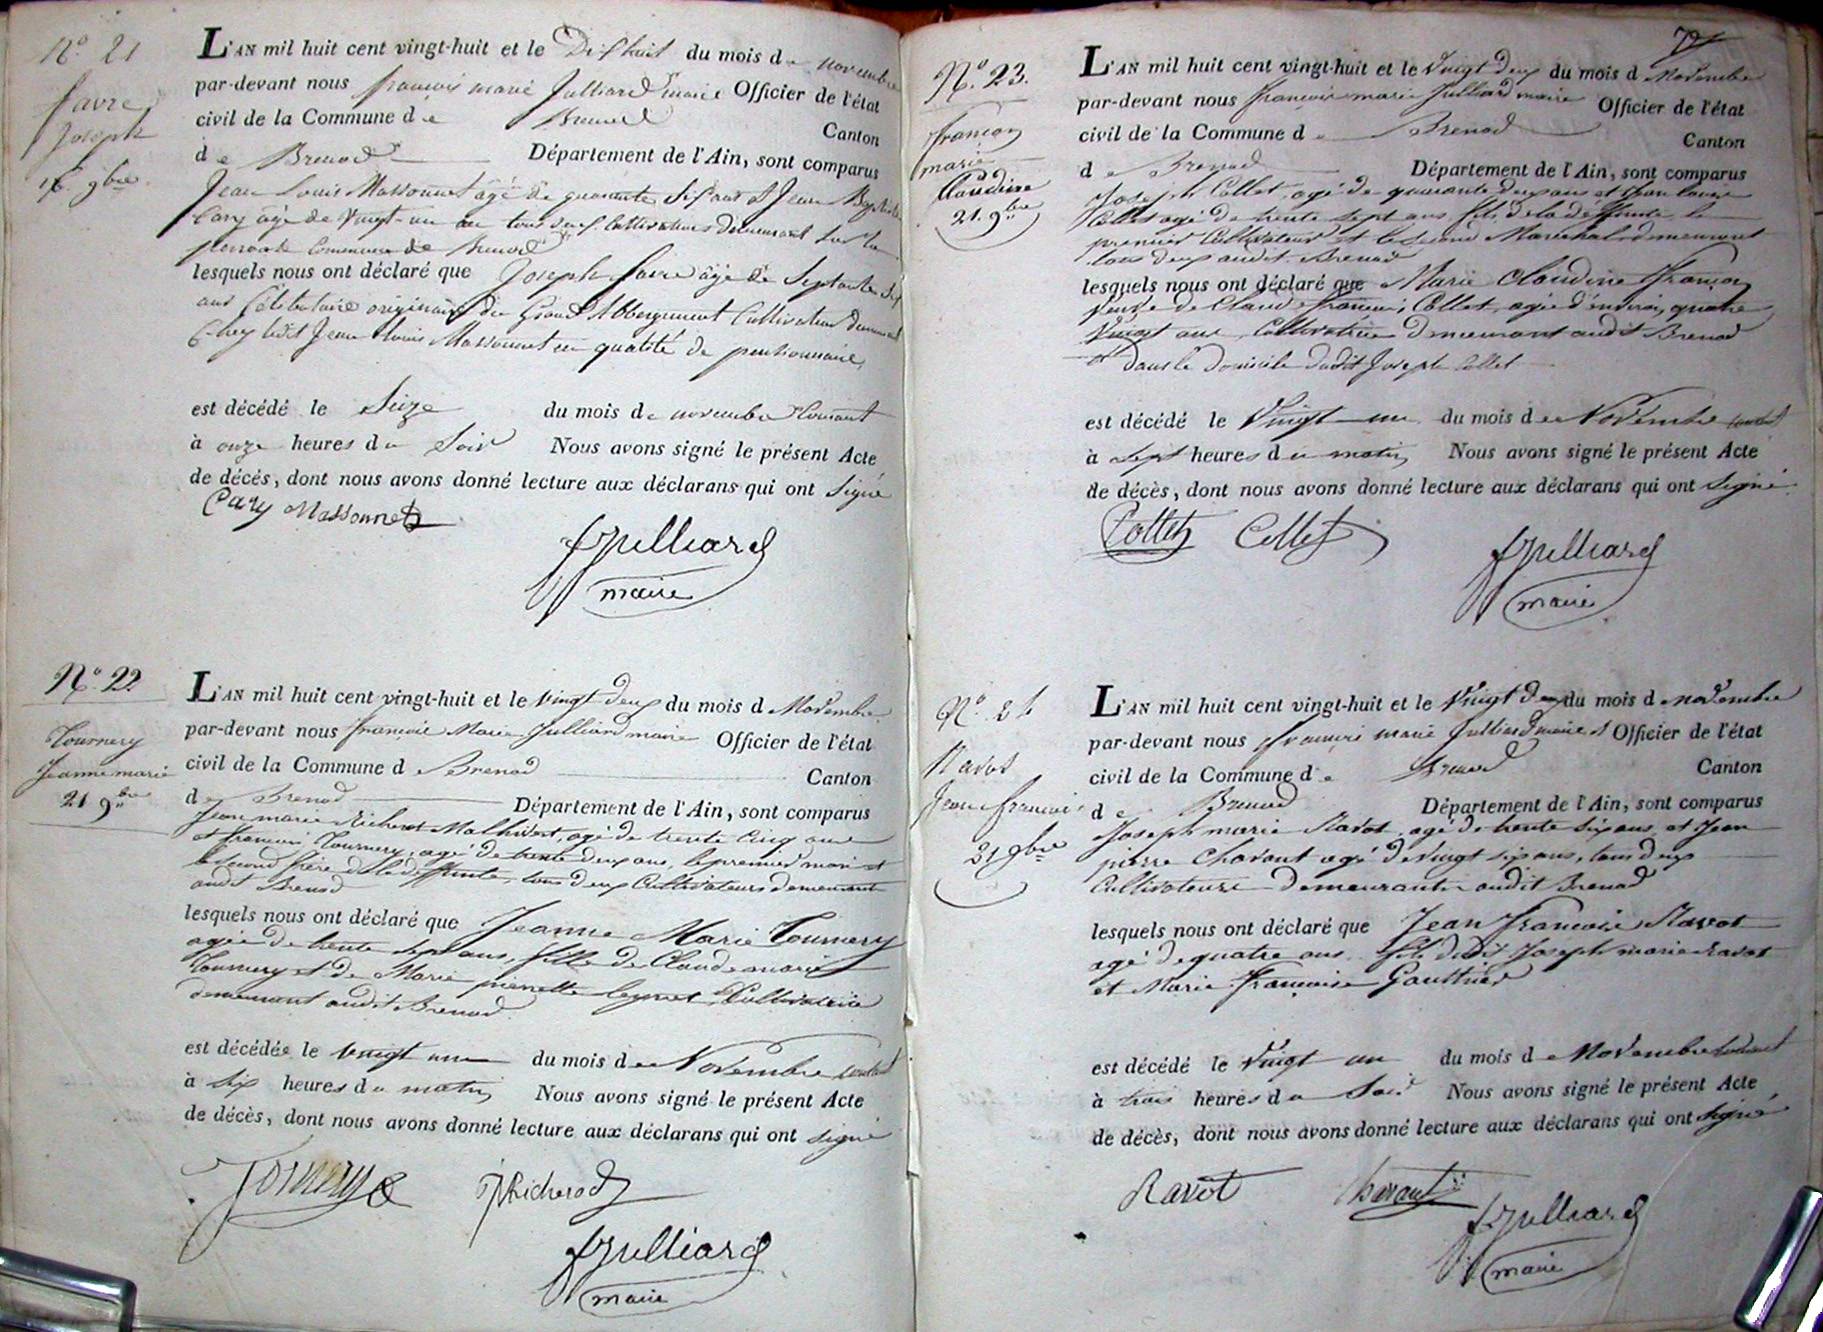 N.o 21
favre
Joseph
16. 9bre
L'AN mil huit cent vingt-huit et le Dixhuit du mois de novembre
par-devant nous françois marie Julliard maire Officier de l'état
civil de la Commune de Brenod Canton
de Brenod Département de l'Ain, sont comparus
Jean Louis Massonnet âgé de quarante six ans et Jean Baptiste
Cary âgé de vingt-un an tous deux Cultivateurs demeurant sur la
Commune de Brenod
lesquels nous ont déclaré que Joseph favre âgé de Septante six
ans Célibataire originaire du Grand Abbergement Cultivateur demeurant
Chez ledit Jean Louis Massonnet en qualité de pensionnaire
est décédé le Seize du mois de novembre Courant
à onze heures du Soir Nous avons signé le présent Acte
de décès, dont nous avons donné lecture aux déclarans qui ont signé
Cary Massonnet
fJulliard
maire
N.o 22
Tournery
Jeanne marie
21 9bre
L'AN mil huit cent vingt-huit et le vingt deux du mois de Novembre
par-devant nous françois Marie Julliard maire Officier de l'état
civil de la Commune de Brenod Canton
de Brenod Département de l'Ain, sont comparus
Jean marie Richerot Mathivet, agé de trente cinq ans
et françois Tournery, agé de trente deux ans, le premier mari et
le second frère de la deffunte, tous deux Cultivateurs demeurant
audit Brenod
lesquels nous ont déclaré que Jeanne Marie Tournery
agée de trente sept ans, fille de Claude marie
Tournery et de Marie pierrette Cultivatrice
demeurant audit Brenod
est décédée le vingt un du mois de Novembre courant
à six heures du matin Nous avons signé le présent Acte
de décès, dont nous avons donné lecture aux déclarans qui ont signé
Tornery JMRicherod
fJulliard
maire
N.o 23.
françon
marie
Claudine
21. 9bre
L'AN mil huit cent vingt-huit et le Vingt deux du mois d Novembre
par-devant nous françois marie Julliard maire Officier de l'état
civil de la Commune de Brenod Canton
de Brenod Département de l'Ain, sont comparus
Joseph Collet, agé de quarante deux ans et Jean louis
Collet agé de trente sept ans, fils de la déffunte le
premier Cultivateur et le second Maréchal demeurant
tous deux audit Brenod
lesquels nous ont déclaré que Marie Claudine françon
veuve de Claude françois Collet, agée d'environ quatre
vingt ans, Cultivatrice demeurant audit Brenod
dans le domicile dudit Joseph Collet
est décédé le Vingt un du mois de Novembre courant
à sept heures du matin Nous avons signé le présent Acte
de décès, dont nous avons donné lecture aux déclarans qui ont signé.
Collet Collet
fJulliard
maire
N.o 24
Ravot
Jean françois
21 9bre
L'AN mil huit cent vingt-huit et le Vingt deux du mois d novembre
par-devant nous françois marie Julliard maire Officier de l'état
civil de la Commune de Brenod Canton
de Brenod Département de l'Ain, sont comparus
Joseph marie Ravot, agé de trente six ans, et Jean
pierre Chavant agé de vingt six ans, tous deux
Cultivateurs demeurant audit Brenod
lesquels nous ont déclaré que Jean françois Ravot
agé de quatre ans fils dudit Joseph marie Ravot
et Marie françoise Gauthier
est décédé le Vingt un du mois de Novembre courant
à trois heures du Soir Nous avons signé le présent Acte
de décès, dont nous avons donné lecture aux déclarans qui ont signé
Ravot Chavant
fJulliard
maire